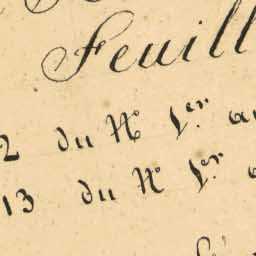 Feuill
2 du N° 1er au
13 du N° 1er